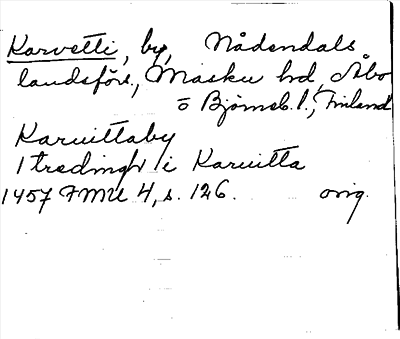 Karvetti, by, Nådendals
landsförs., Masku hd, Åbo
o Björneb. l., Finland
Karuittaby
1 tredingh i Karuitta
1457 FMU 4, s. 126. orig.